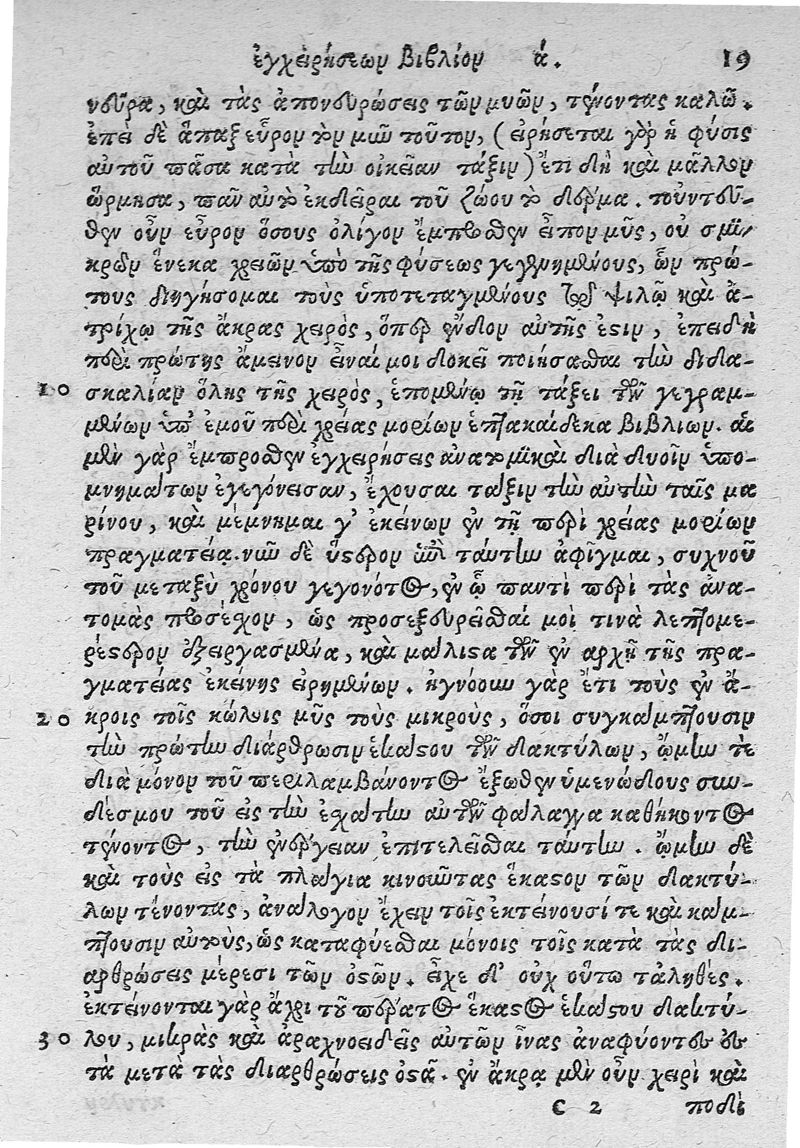 ἐγχειρήσεων βιβλίον ά. 19
νεῦρα, καὶ τὰς ἀπονευρώσεις τῶν μυῶν, τένοντας καλῶ.
ἐπεὶ δὲ ἅπαξ εὗρον τὸν μῦν τοῦτον, (εἰρήσεται γὰρ ἡ φύσις
αὐτοῦ πᾶσα κατὰ τὴν οἰκείαν τάξιν) ἔτι δὴ καὶ μᾶλλον
ὥρμησα, πᾶν αὐτὸ ἐκδεῖραι τοῦ ζώου τὸ δέρμα. τοὐντεῦ-
θεν οὖν εὗρον ὅσους ὀλίγον ἔμπροσθεν εἶπον μῦς, οὐ σμι-
κρῶν ἕνεκα χρειῶν ὑπὸ τῆς φύσεως γεγενημένους, ὧν πρώ-
τους διηγήσομαι τοὺς ὑποτεταγμένους τῷ ψιλῷ καὶ ἀ-
τρίχῳ τῆς ἄκρας χειρὸς, ὅπερ ἔνδον αὐτῆς ἐστιν, ἐπειδὴ
περὶ πρώτης ἄμεινον εἶναί μοι δοκεῖ ποιήσασθαι τὴν διδα-
10 σκαλίαν ὅλης τῆς χειρὸς, ἑπομένῳ τῇ τάξει τῶν γεγραμ-
μένων ὑπ' ἐμοῦ περὶ χρείας μορίων ἑπτακαίδεκα βιβλίων. αἱ
μὲν γὰρ ἔμπροσθεν ἐγχειρήσεις ἀνατομικαὶ διὰ δυοῖν ὑπο-
μνημάτων ἐγεγόνεισαν, ἔχουσαι τάξιν τὴν αὐτὴν ταῖς μα
ρίνου, καὶ μέμνημαι γ' ἐκείνων ἐν τῇ περὶ χρείας μορίων
πραγματείᾳ. νῦν δὲ ὕστερον ἐπὶ ταύτην ἀφῖγμαι, συχνοῦ
τοῦ μεταξὺ χρόνου γεγονότος, ἐν ᾧ παντὶ περὶ τὰς ἀνα-
τομὰς προσέχον, ὡς προσεξευρεῖσθαί μοί τινὰ λεπτομε-
ρέστερον ἐξειργασμένα, καὶ μάλιστα τῶν ἐν ἀρχῇ τῆς πρα-
γματείας ἐκείνης εἰρημένων. ἠγνόουν γὰρ ἔτι τοὺς ἐν ἄ-
20 κροις τοῖς κώλοις μῦς τοὺς μικροὺς, ὅσοι συγκάμπτουσιν
τὴν πρώτην διάρθρωσιν ἑκάστου τῶν δακτύλων, ᾤμην τε
διὰ μόνον τοῦ περιλαμβάνοντος ἔξωθεν ὑμενώδους συν-
δέσμου τοῦ εἰς τὴν ἐσχάτην αὐτῶν φάλαγγα καθήκοντος
τένοντος, τὴν ἐνέργειαν ἐπιτελεῖσθαι ταύτην. ᾤμην δὲ
καὶ τοὺς εἰς τὰ πλάγια κινοῦντας ἕκαστον τῶν δακτύ-
λων τένοντας, ἀνάλογον ἔχειν τοῖς ἐκτείνουσί τε καὶ κάμ-
πτουσιν αὐτοὺς, ὡς καταφύεσθαι μόνοις τοῖς κατὰ τὰς δι-
αρθρώσεις μέρεσι τῶν ὀστῶν. εἶχε δ' οὐχ οὕτω τἀληθές.
ἐκτείνονται γὰρ ἄχρι τοῦ πέρατος ἕκαστος ἑκάστου δακτύ-
30 λου, μικρὰς καὶ ἀραχνοειδεῖς αὐτῶν ἶνας ἀναφύοντες ἐς
τὰ μετὰ τὰς διαρθρώσεις ὀστᾶ. ἐν ἄκρᾳ μὲν οὖν χειρὶ καὶ
C 2 ποδὶ